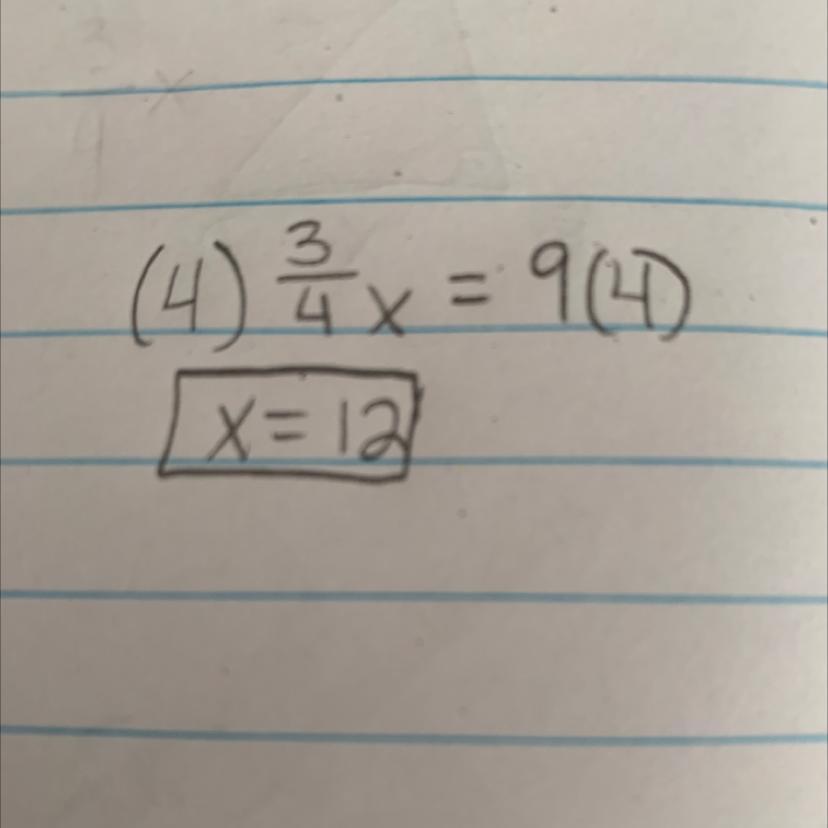 (4) 3/4 x = 9(4)
x = 12